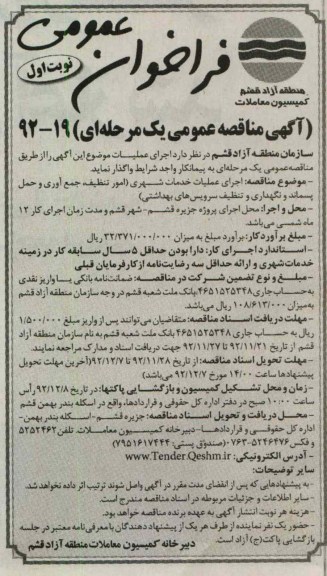 فراخوان عمومی
نوبت اول
منطقه آزاد قشم
کمیسیون معاملات
(آگهی مناقصه عمومی یک مرحله‌ای) ۱۹-۹۲
سازمان منطقه آزاد قشم در نظر دارد اجرای عملیات موضوع این آگهی را از طریق
مناقصه عمومی یک مرحله‌ای به پیمانکار واجد شرایط واگذار نماید.
- موضوع مناقصه: اجرای عملیات خدمات شهری (امور تنظیف، جمع آوری و حمل
پسماند و نگهداری و تنظیف سرویس‌های بهداشتی)
- محل و اجرا: محل اجرای پروژه جزیره قشم-شهر قشم و مدت زمان اجرای کار ۱۲
ماه شمسی می‌باشد.
- مبلغ برآورد کار: برآورد مبلغ به میزان ۳۲/۳۷۱/۰۰۰/۰۰۰ ریال
- استاندارد اجرای کار: دارا بودن حداقل ۵ سال سابقه کار در زمینه
خدمات شهری و ارائه حداقل سه رضایت‌نامه از کارفرمایان قبلی
- مبلغ و نوع تضمین شرکت در مناقصه: ضمانت‌نامه بانکی یا واریز نقدی
به حساب جاری ۴۶۵۱۵۲۵۳۴۸ بانک ملت شعبه قشم در وجه سازمان منطقه آزاد قشم
به میزان ۱۰۸/۶۱۳/۰۰۰ ریال می‌باشد.
- مهلت دریافت اسناد مناقصه: متقاضیان می‌توانند پس از واریز مبلغ ۱/۵۰۰/۰۰۰
ریال به حساب جاری ۴۶۵۱۵۲۵۳۴۸ بانک ملت شعبه قشم به نام سازمان منطقه آزاد
قشم از تاریخ ۹۲/۱۱/۲۱ تا ۹۲/۱۱/۲۷ جهت دریافت اسناد و مدارک مراجعه نمایند.
- مهلت تحویل اسناد مناقصه: از تاریخ ۹۲/۱۱/۲۸ تا ۹۲/۱۲/۷ (آخرین مهلت تحویل
پیشنهادها ساعت ۱۴/۰۰ مورخ ۹۲/۱۲/۷ می باشد)
- زمان و محل تشکیل کمیسیون و بازگشایی پاکتها: در تاریخ ۹۲/۱۲/۸ رأس
ساعت ۱۰/۰۰ صبح در دفتر اداره کل حقوقی و قراردادها، واقع در اسکله بندر بهمن قشم
- محل دریافت و تحویل اسناد مناقصه: جزیره قشم-اسکله بندر بهمن-
اداره کل حقوقی و قراردادها-دبیرخانه کمیسیون معاملات. تلفن ۵۲۵۲۴۶۲
و فکس ۵۲۴۶۴۷۶-۰۷۶۳ (صندوق پستی: ۷۹۵۱۶۱۷۴۴۴)
- آدرس الکترونیکی: www.Tender.Qeshm.ir
سایر توضیحات:
- به پیشنهادهایی که پس از انقضای مدت مقرر در آگهی واصل شوند ترتیب اثر داده نخواهد شد.
- سایر اطلاعات و جزئیات مربوطه در اسناد مناقصه مندرج است.
- هزینه هر دو نوبت انتشار آگهی به عهده برنده مناقصه خواهد بود.
- حضور یک نفر نماینده از طرف هر یک از پیشنهاد دهندگان با معرفی‌نامه معتبر در جلسه
بازگشایی پاکت (ج) آزاد است.
دبیرخانه کمیسیون معاملات منطقه آزاد قشم